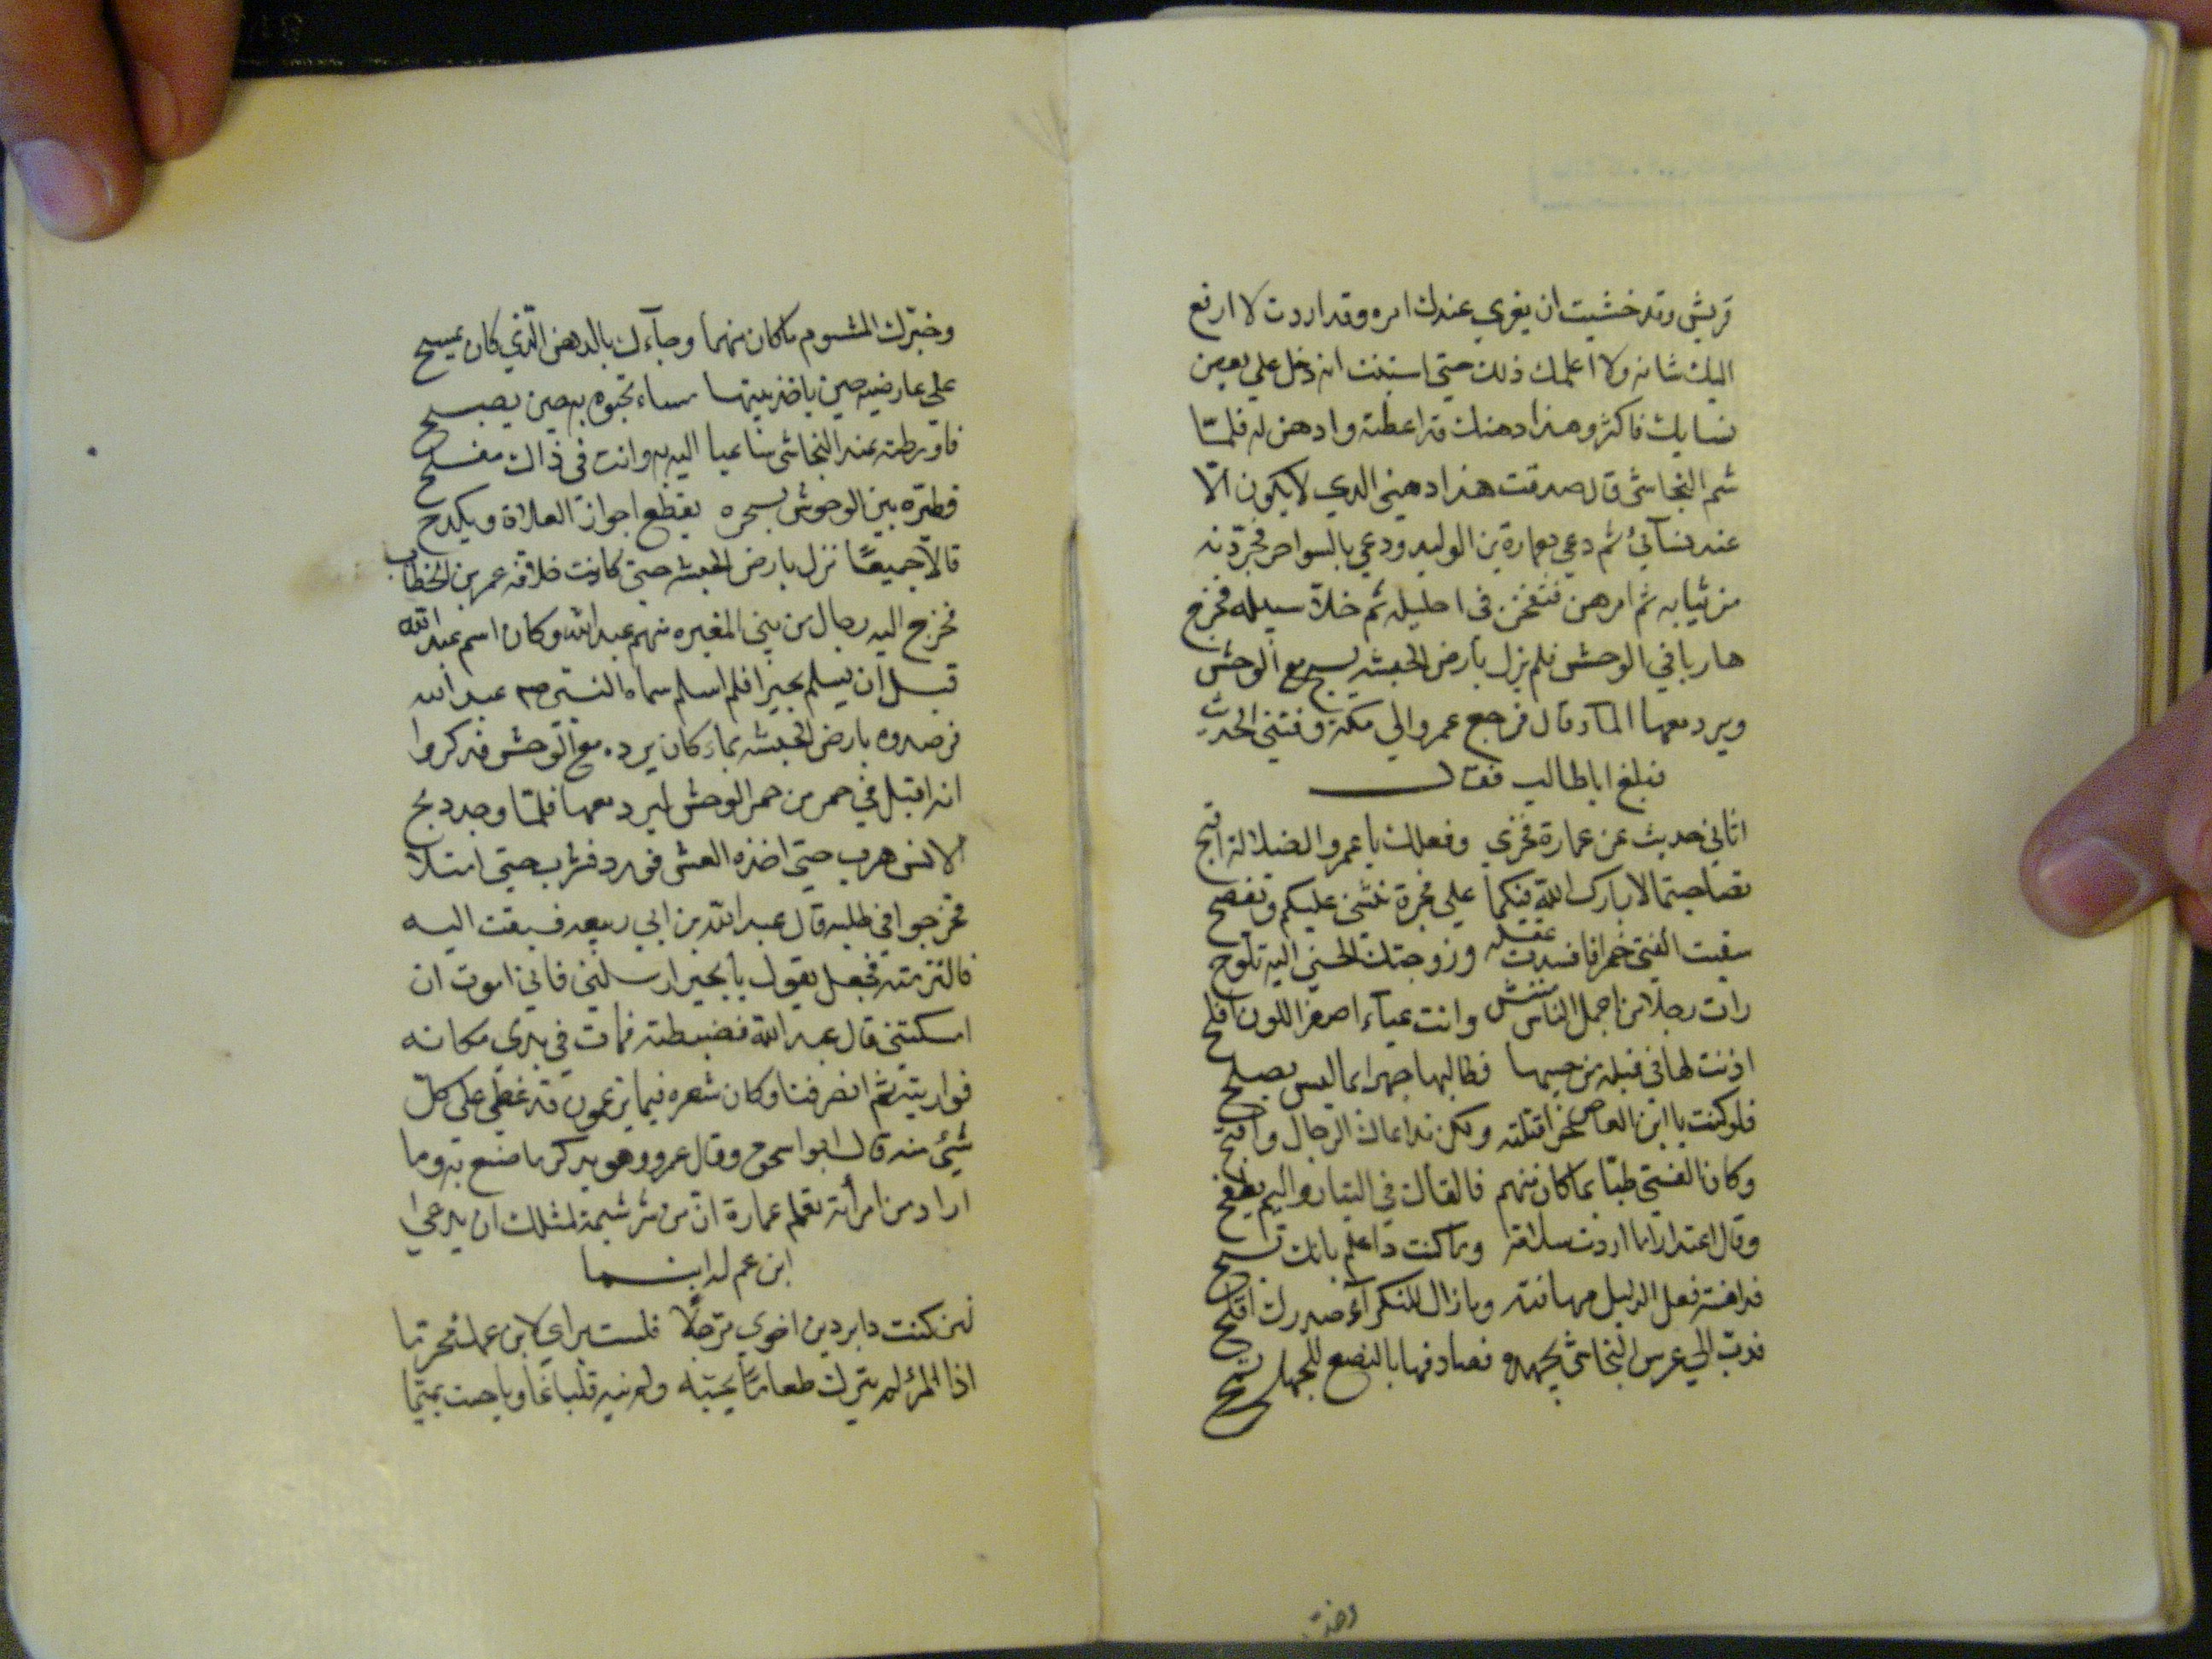 قريش وقد خشيت ان يغري عندك امره وقد اردت لا ارفع
اليك شانه ولا اعلمك ذلك حتي استثبت انه دخل علي بعض
نسايك فاكثر وهذا دهنك قد اعطته وادهن له فلمّا
شم النجاشي قال صدقت هذا دهني الذي لا يكون الّا
عند نسآئي ثم دعي بعمارة بن الوليد ودعي بالسواحر فجردنه
من ثيابه ثم امرهن فنفخن في احليله ثم خلا سبيله فخرج
هاربا في الوحش فلم يزل بأرض الحبشه يسيح مع الوحش
ويرد معها المآء قال فرجع عمرو الي مكة وفشي الحديث
فبلغ اباطالب فقال
اتاني حديث عن عمارة مخزي وفعلك يا عمرو الضلالة اقبح
تصاحبتما لا بارك اللّه فيكما علي فجرة تثني عليكم وتفضح
سقيت الفتي خمرا فافسدت عقله وزوجتك الحسني اليه تلوح
رات رجلا من اجمل الناس وانت عباء اصفر اللون افلح
اذنت لها في قبلة من فطالبها جهرا بما ليس يصلح
فلو كنت يا ابن العاص قتلته ولكن الرجال واقبح
وكان الفتي طبّا بما كان منهم فالقاك في التيار واليم يطفح
وقال اعتذارا ما اردت سلامة وما كنت ذا علم بانك تسبح
فعل الذليل مهانة وما زال للنكرآء صدرك
فدب الي عرس النجاشي بجهده فصادفها بالبضع للجهل تسمح
وخبّرك المشوم ما كان منهما وجآءك بالدهن الّذي كان يمسح
علي عارضيه حين ياخذ بيتها مساء تحبوه به حين يصبح
فاورطته عند النجاشي ساعيا اليه به وانت في ذاك مفسح
فطيّره بين الوحوش بسحره يقطع اجواز الفلاة ويكدح
قالا جميعًا نزل بارض الحبشه حتي كانت خلافة عمر بن الخطاب
فخرج اليه رجال من بني المغيره منهم عبد اللّه وكان اسم عبد اللّه
قبل ان يسلم بحيرا فلما اسلم سماه النبي صم عبد اللّه
فرصدوه بارض الحبشه بماء كان يرده مع الوحش فذكروا
انه اقبل في حمر من حمر الوحش ليرد معها فلمّا وجد ريح
الانس هرب حتي اخذه العطش فورد فشرب حتي امتلا
فخرجوا في طلبه قال عبد اللّه بن ابي ربيعه فسبقت اليه
فالتزمته فجعل يقول يا بحير ارسلني فاني اموت ان
امسكتني قال عبد اللّه فضبطته فمات في يدي مكانه
فواريته ثم انصرفنا وكان شعره فيما يزعمون قد غطي علي كلّ
شيئ منه قال ابو اسحق وقال عمرو وهو يذكر ما صنع به وما
اراد من امرأته تعلم عمارة انّ من شر شيمة لمثلك ان يدعي
ابن عم له ابنما
لين كنت ذا بردين احوي مرجلًا فلست براي لابن عمك محرما
اذا المرء لم يترك طعامًا يحبّه ولم ينه قلبا غاويا حيث يمّما